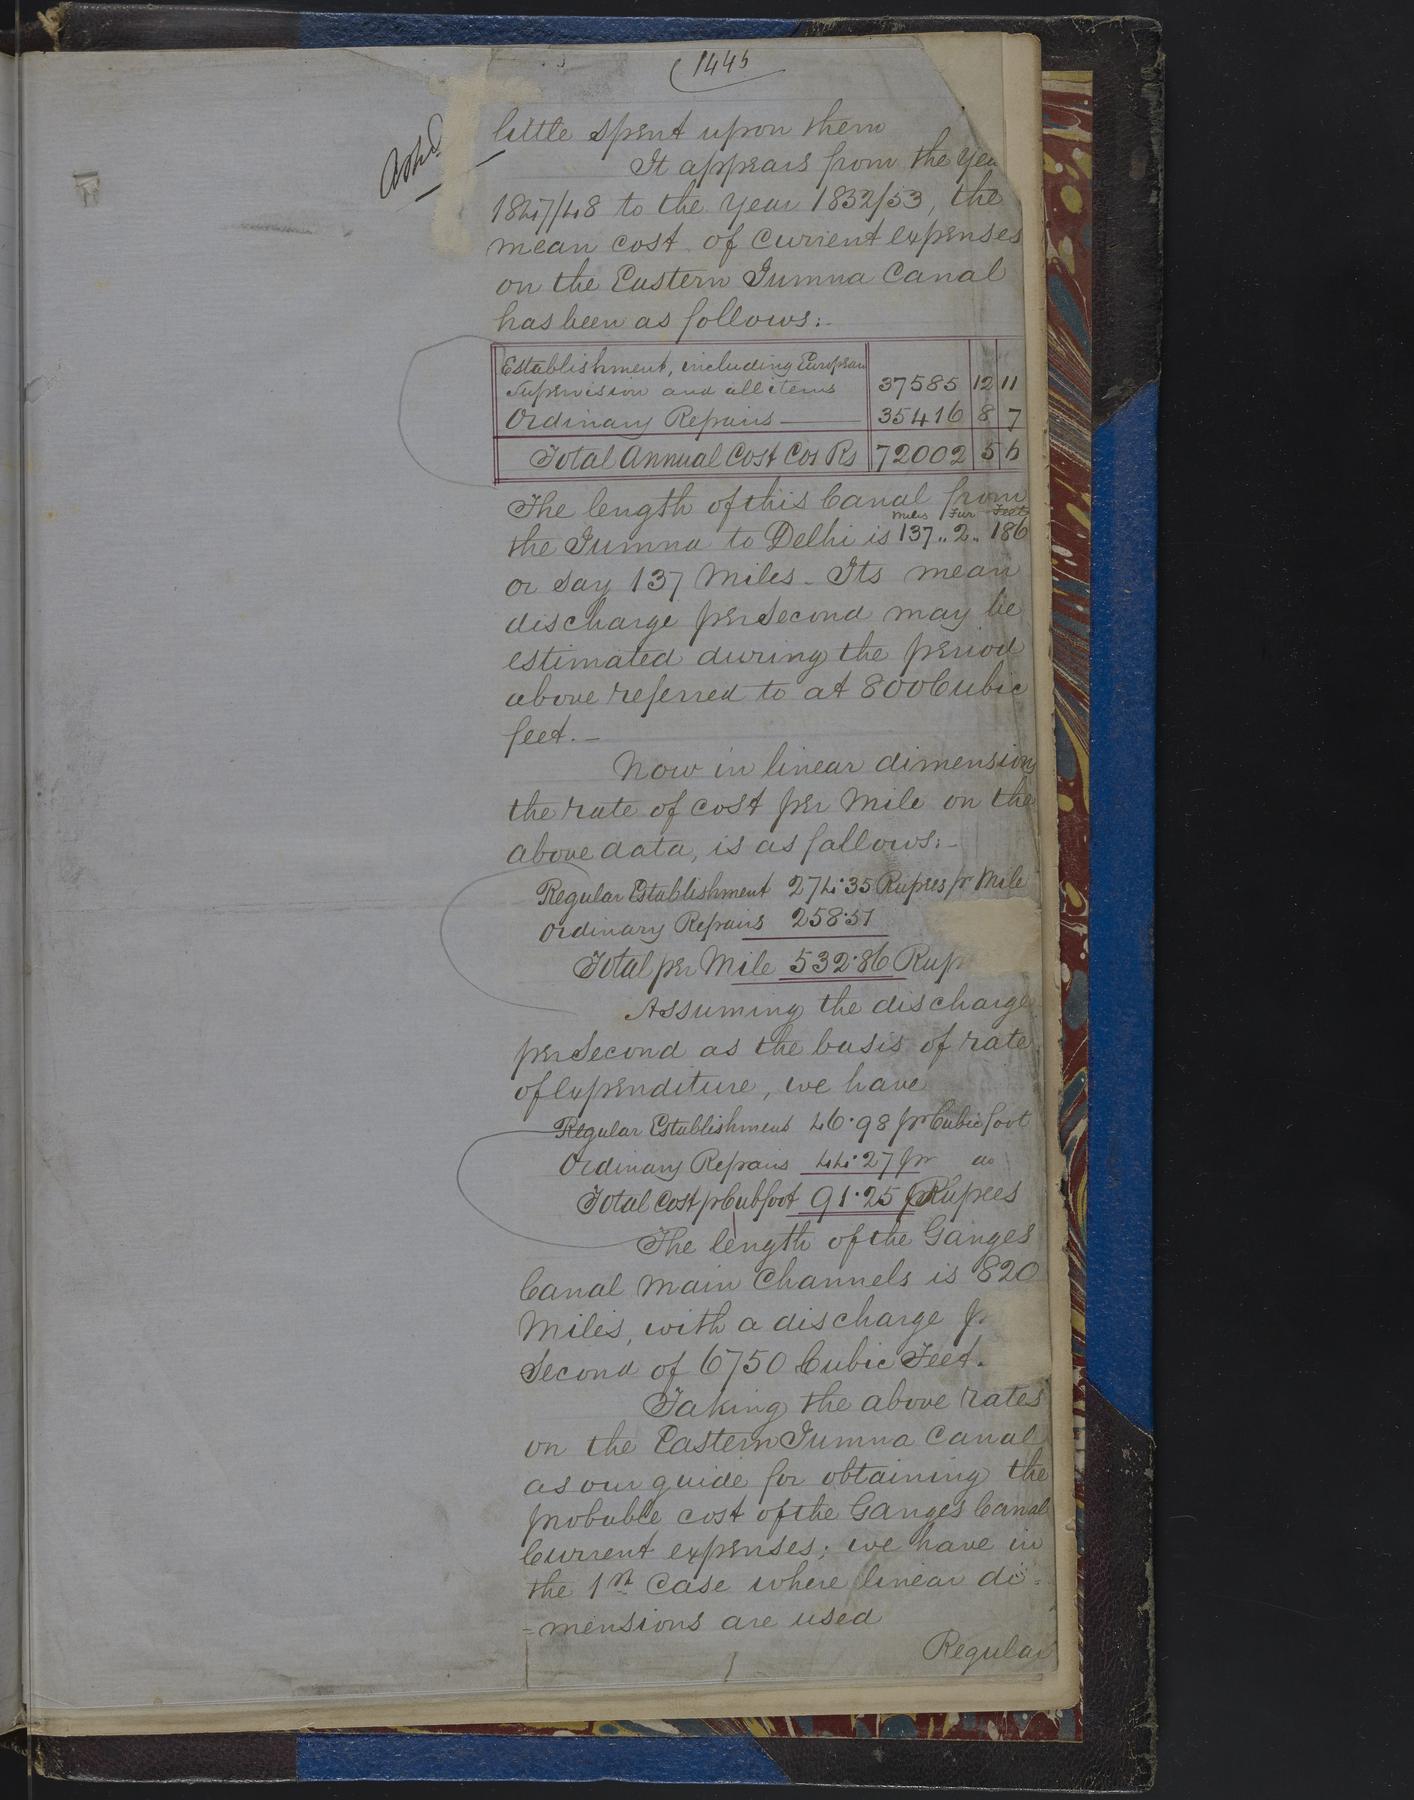 1445
little spent upon them
It appears from the Yea
1847/48 to the Year 1852/53, the
mean cost of Current expenses
on the Eastern Jumna Canal
has been as follows:-
Establishment, including European
Supervision and all items 37585 12 11
Ordinary Repairs 35416 8 7
Total Annual Cost Cos Rs 72002 5 6
The length of this Canal from
Miles Fur Feet
the Jumna to Delhi is 137 .. 2 .. 186
or say 137 Miles - Its mean
discharge per Second may be
estimated during the period
above referred to at 800 Cubic
feet. -
Now in linear dimensions
the rate of cost per Mile on the
above data, is as follows:-
Regular Establishment 274.35 Rupees pr Mile
Ordinary Repairs 258.51
Total per Mile 532.86 Rup
Assuming the discharge
per Second as the basis of rate
of expenditure, we have
Regular Establishment 46.98 pr Cubic foot
Ordinary Repairs 44.27 pr do
Total Cost pr Cub foot 91.25 Rupees
The length of the Ganges
Canal Main Channels is 820
Miles, with a discharge p
Second of 6750 Cubic Feet.
Taking the above rates
on the Eastern Jumna Canal
as our guide for obtaining the
probable cost of the Ganges Canal
Current expenses; we have in
the 1st Case where linear di=
=mensions are used
Regular